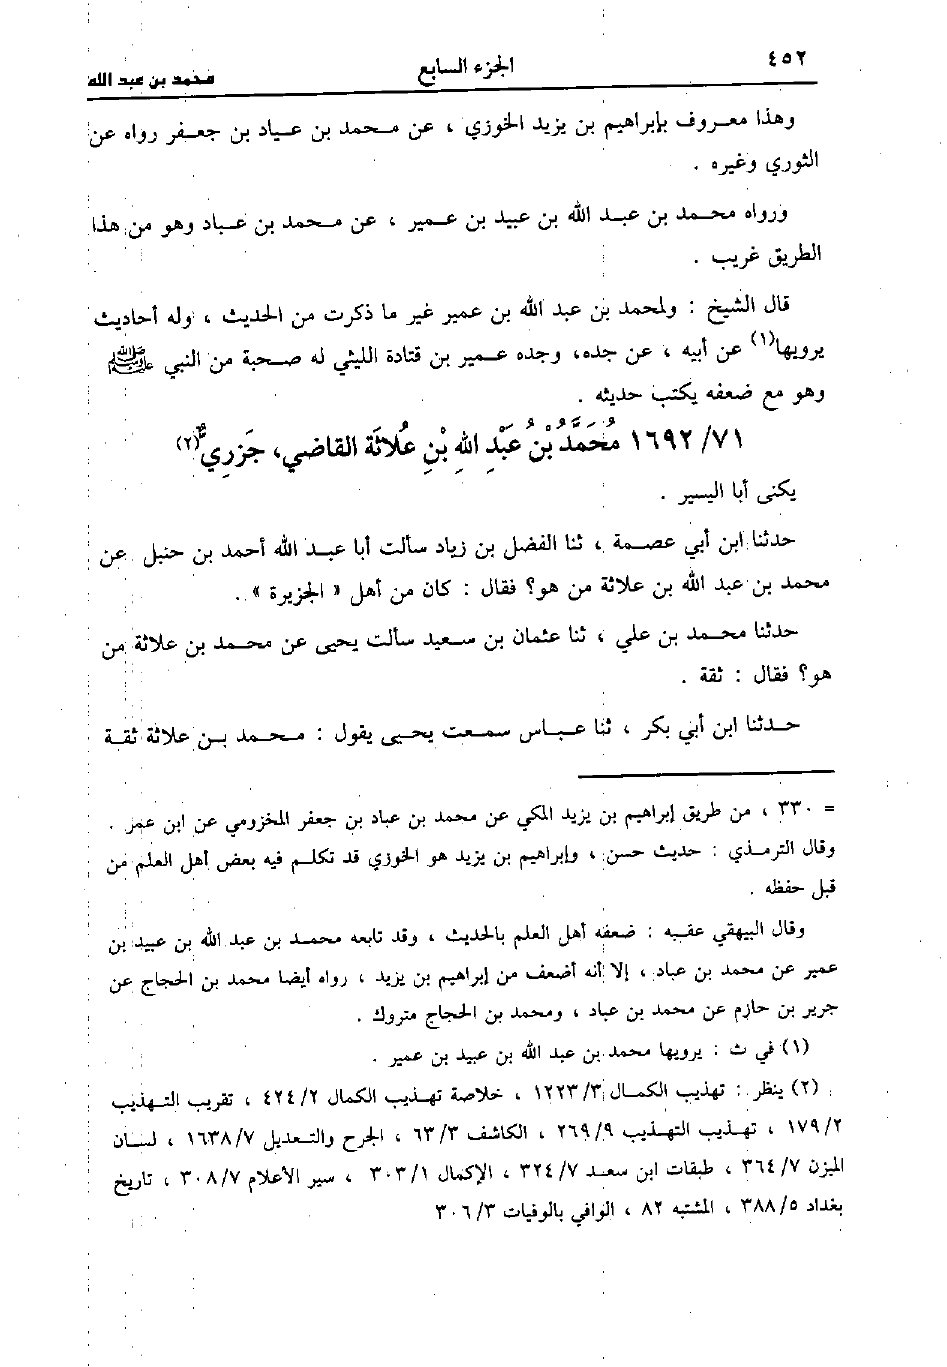 ٤٥٢
الجزء السابع
محمد بن عبد الله
وهذا معروف بإبراهيم بن يزيد الخوزي ، عن محمد بن عياد بن جعفر رواه عن
الثوري وغيره .
ورواه محمد بن عبد الله بن عبيد بن عمير ، عن محمد بن عباد وهو من هذا
الطريق غريب .
قال الشيخ : ولمحمد بن عبد الله بن عمير غير ما ذكرت من الحديث ، وله أحاديث
يرويها(١) عن أبيه ، عن جده، وجده عمير بن قتادة الليثي له صحبة من النبي ﷺ
وهو مع ضعفه يكتب حديثه .
١٦٩٢/٧١ مُحَمَّدُ بْنُ عَبْدِ اللهِ بْنِ عُلاثَة القاضي، جَزَرِي(٢)
يكنى أبا اليسير .
حدثنا ابن أبي عصمة ، ثنا الفضل بن زياد سألت أبا عبد الله أحمد بن حنبل عن
محمد بن عبد الله بن علاثة من هو؟ فقال : كان من أهل « الجزيرة » .
حدثنا محمد بن علي ، ثنا عثمان بن سعيد سألت يحيى عن محمد بن علاثة من
هو؟ فقال : ثقة .
حدثنا ابن أبي بكر ، ثنا عباس سمعت يحيى يقول : محمد بن علاثة ثقة
= ٣٣٠ ، من طريق إبراهيم بن يزيد المكي عن محمد بن عباد بن جعفر المخزومي عن ابن عمر .
وقال الترمذي : حديث حسن ، وإبراهيم بن يزيد هو الخوزي قد تكلم فيه بعض أهل العلم من
قبل حفظه .
وقال البيهقي عقبه : ضعفه أهل العلم بالحديث ، وقد تابعه محمد بن عبد الله بن عبيد بن
عمير عن محمد بن عباد ، إلا أنه أضعف من إبراهيم بن يزيد ، رواه أيضا محمد بن الحجاج عن
جرير بن حازم عن محمد بن عباد ، ومحمد بن الحجاج متروك .
(١) في ث : يرويها محمد بن عبد الله بن عبيد بن عمير .
(٢) ينظر : تهذيب الكمال ١٢٢٣/٣ ، خلاصة تهذيب الكمال ٤٢٤/٢ ، تقريب التهذيب
١٧٩/٢ ، تهذيب التهذيب ٢٦٩/٩ ، الكاشف ٦٣/٣ ، الجرح والتعديل ١٦٣٨/٧ ، لسان
الميزن ٣٦٤/٧ ، طبقات ابن سعد ٣٢٤/٧ ، الإكمال ٣٠٣/١ ، سير الأعلام ٣٠٨/٧ ، تاريخ
بغداد ٣٨٨/٥ ، المشتبه ٨٢ ، الوافي بالوفيات ٣٠٦/٣